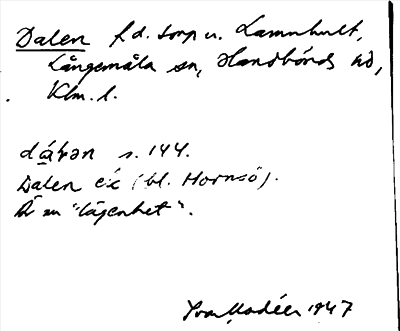 Dalen f.d. torp u. Lammhult,
Långemåla sn, Handbörds hd,
Klm. l.
s. 144.
Dalen ek (bl. Hornsö).
Är nu "lägenhet".
Ivar Modéer 1947